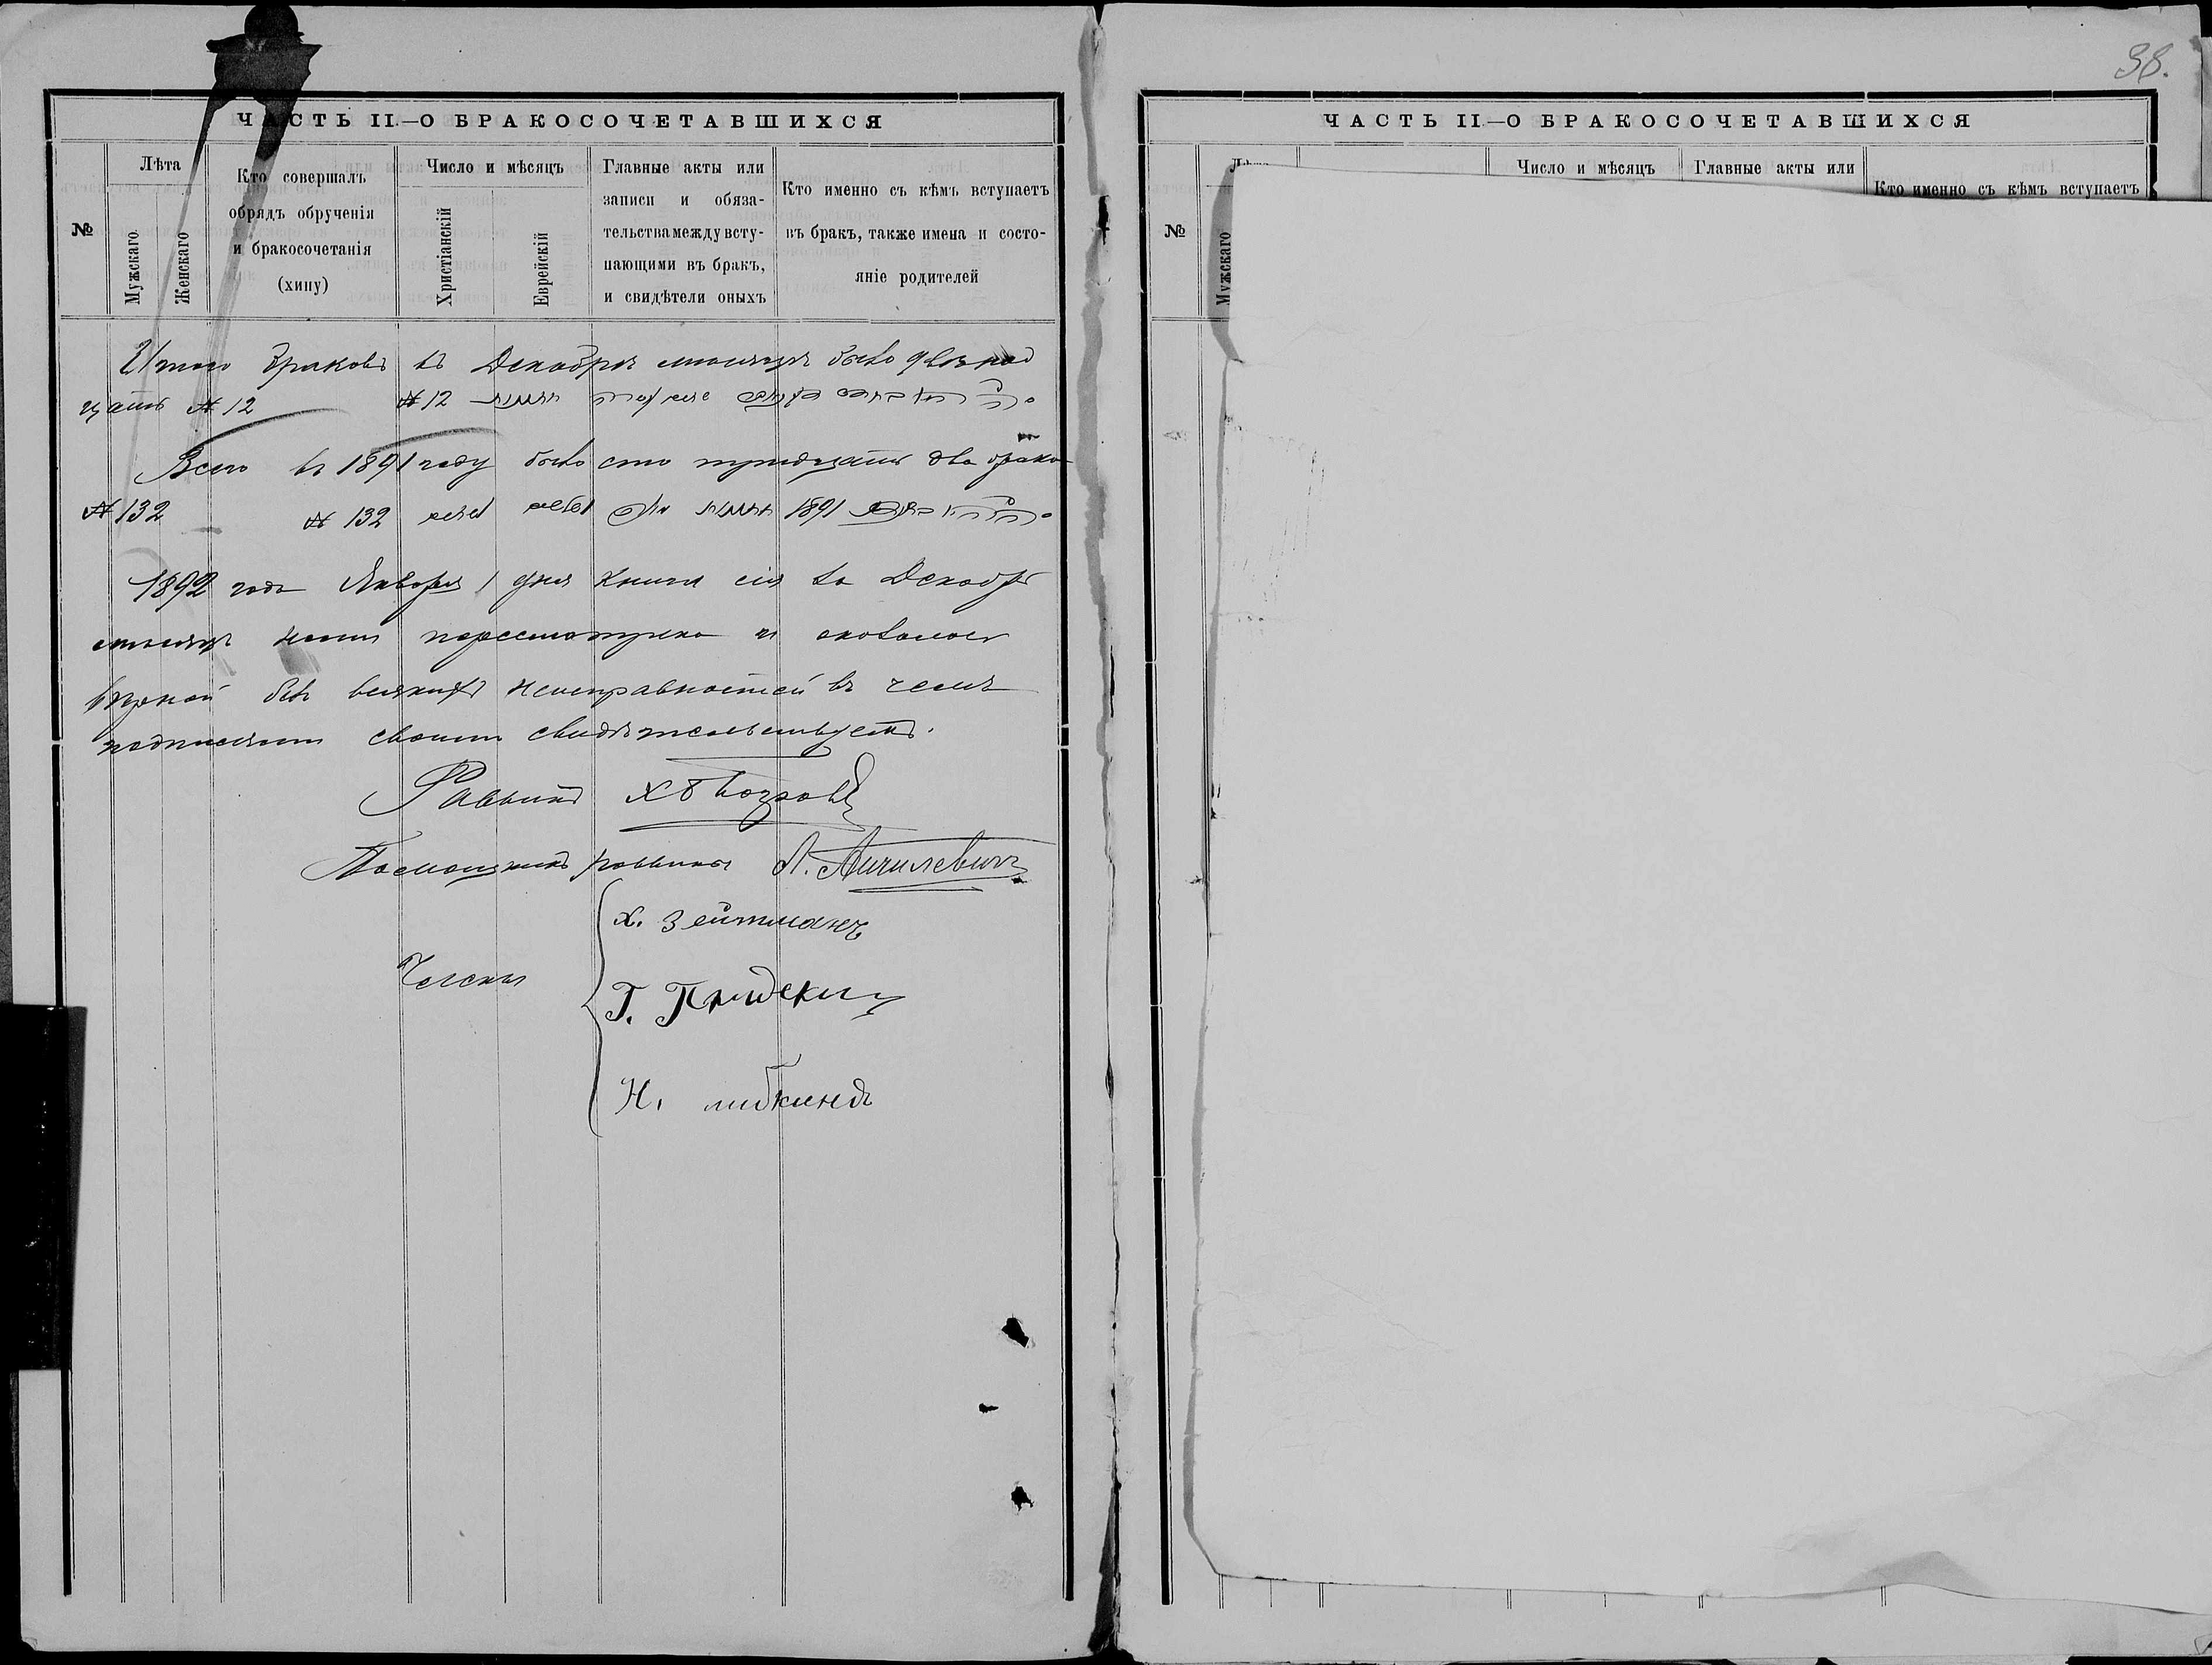 38.
ЧАСТЬ II.—О БРАКОСОЧЕТАВШИХСЯ
№
Лѣта
Мужскаго
Женскаго
Кто совершалъ
обрядъ обрученія
и бракосочетанія
(хипу)
Число и мѣсяцъ
Христіанскій
Еврейскій
Главные акты или
записи и обяза-
тельства между всту-
пающими въ бракъ,
и свидѣтели оныхъ
Кто именно съ кѣмъ вступаетъ
въ бракъ, также имена и состо-
яніе родителей
Итого браковъ въ Декабрѣ мѣсяцѣ было двѣнад
цать № 12 № 12
Всего въ 1891 году было сто тридцать два брака
№ 132 № 132 1891
1892 года Января 1 дня книга сія за Декабрь
мѣсяцъ нами пересмотрена и оказалась
вѣрной безъ всякихъ неисправностей въ чемъ
подписями своими свидѣтельствуемъ.
Раввинъ
Помощникъ раввина
Члены
Х. Зейтманъ
Г.
Н. либкиндъ
ЧАСТЬ II.—О БРАКОСОЧЕТАВШИХСЯ
№
Мужскаго
Число и мѣсяцъ
Главные акты или
Кто именно съ кѣмъ вступаетъ